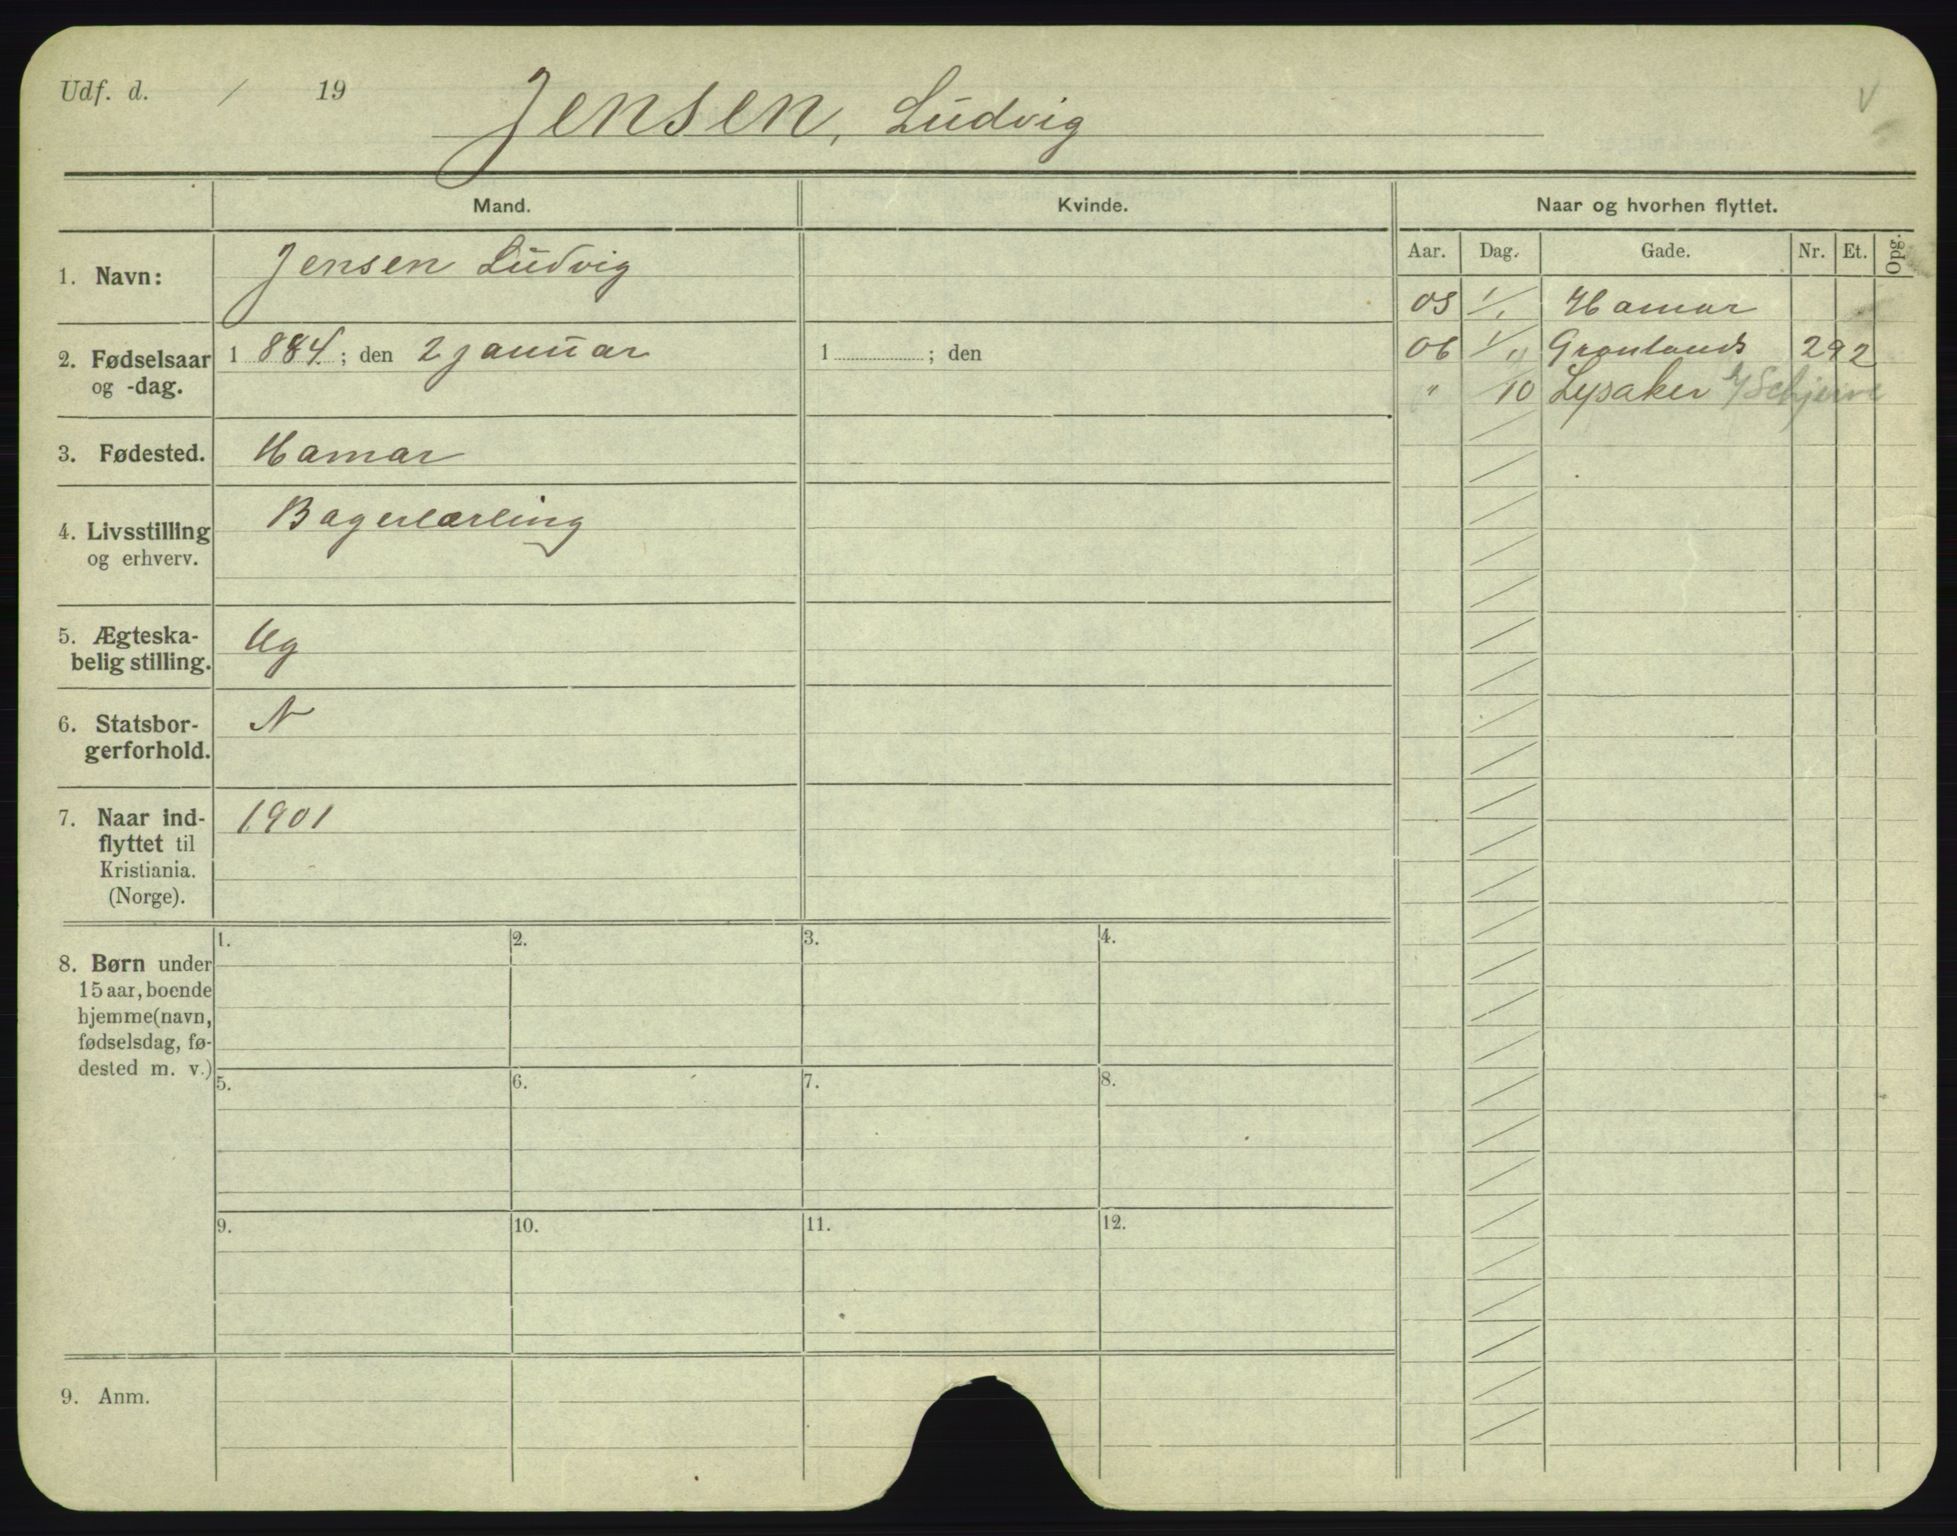 Udf. d. / 19
Jensen, Ludvig
V
Mand. Kvinde. Naar og hvorhen flyttet.
Aar. Dag. Gade. Nr. Et. Opg.
1. Navn: Jensen Ludvig
05 1/1 Hamar
2. Fødselsaar og -dag. 1884; den 2 januar 1 ; den
06 1/11 Grønlands 29 2
" /10 Lysaker b/Schjerve
3. Fødested. Hamar
4. Livsstilling og erhverv. Bagerlærling
5. Ægteska-
belig stilling. Ug
6. Statsbor-
gerforhold. N
7. Naar ind-
flyttet til
Kristiania.
(Norge). 1901
8. Børn under
15 aar, boende
hjemme (navn,
fødselsdag, fø-
dested m. v.)
1. 2. 3. 4.
5. 6. 7. 8.
9. 10. 11. 12.
9. Anm.